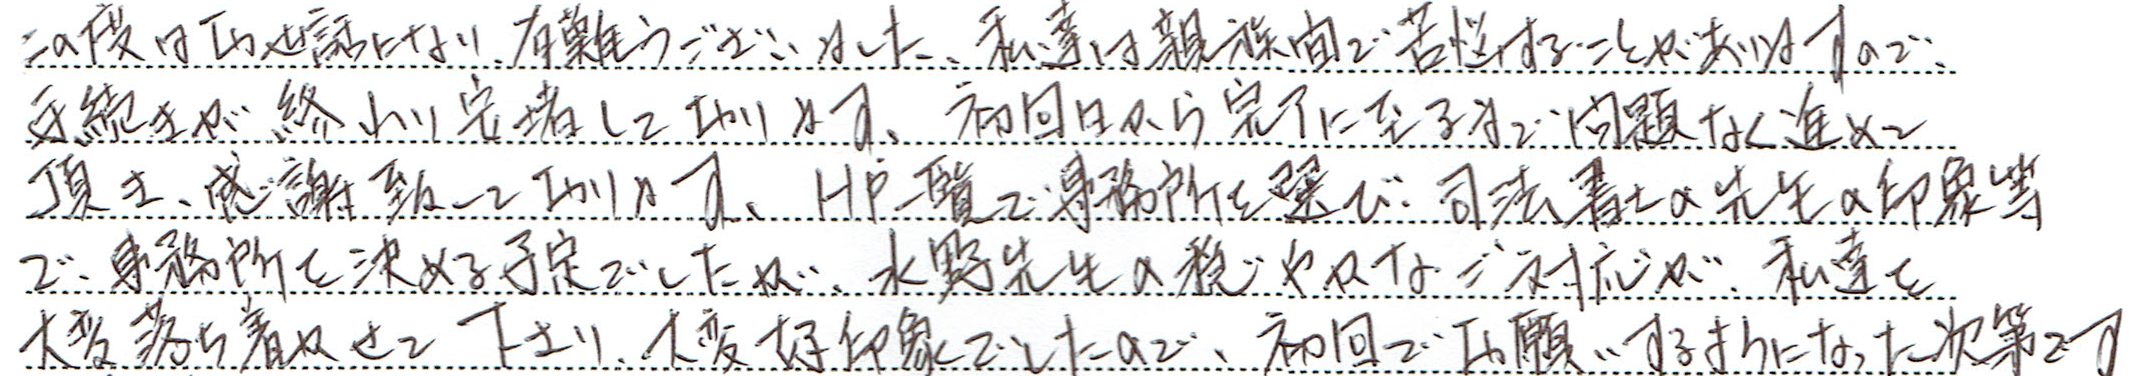 この度はお世話になり、有難うございました。私達は親族間で苦悩することがありますので、
手続きが終わり安堵しております。初回日から完了に至るまで問題なく進めて
頂き、感謝致しております。HP一覧で事務所を選び、司法書士の先生の印象等
で、事務所を決める予定でしたが、水野先生の穏やかなご対応が、私達を
大変落ち着かせて下さり、大変好印象でしたので、初回でお願いするまちになった次第です